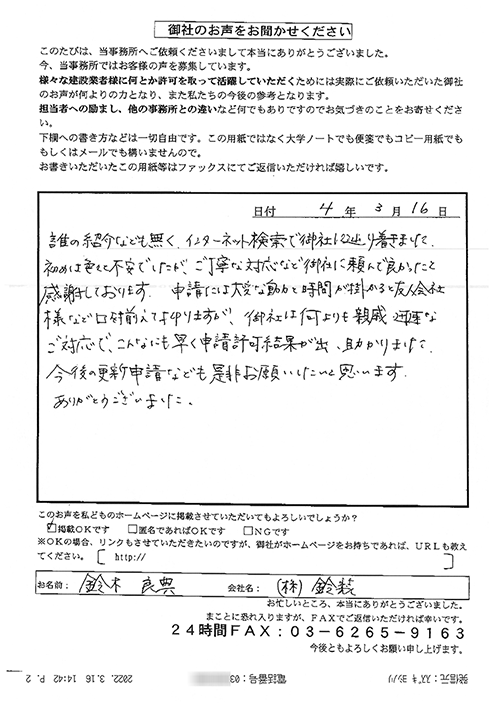 御社のお声をお聞かせください
このたびは、当事務所へご依頼くださいまして本当にありがとうございました。
今、当事務所ではお客様の声を募集しています。
様々な建設業者様に何とか許可を取って活躍していただくためには実際にご依頼いただいた御社
のお声が何よりの力となり、また私たちの今後の参考となります。
担当者への励まし、他の事務所との違いなど何でもありですのでお気づきのことをお寄せくださ
い。
下欄への書き方などは一切自由です。この用紙ではなく大学ノートでも便箋でもコピー用紙でも
もしくはメールでも構いませんので。
お書きいただいたこの用紙等はファックスにてご返信いただければ嬉しいです。
日付 4 年 3 月 16 日
誰の紹介なども無く、インターネット検索で御社に辿り着きました。
初めは色々と不安でしたが、ご丁寧な対応など御社に頼んで良かったと
感謝しております。申請には大変な労力と時間が掛かると友人会社
様などで口対前えておりますが、御社は何よりも親威 迅速な
ご対応で、こんなにも早く申請許可結果が出、助かりました。
今後の更新申請なども是非お願いしたいと思います。
ありがとうございました。
このお声を私どものホームページに掲載させていただいてもよろしいでしょうか?
☑掲載OKです □匿名であればOKです □NGです
※OKの場合、リンクもさせていただきたいのですが、御社がホームページをお持ちであれば、URLも教え
てください。[ http:// ]
お名前: 鈴木 良典 会社名: (株) 鈴装
お忙しいところ、本当にありがとうございました。
まことに恐れ入りますが、FAXでご返信いただければ幸いです。
24時間FAX:03-6265-9163
今後ともよろしくお願い申し上げます。
発信元:スズキ ヨシノリ 電話番号:03 2022. 3.16 14:42 P. 2